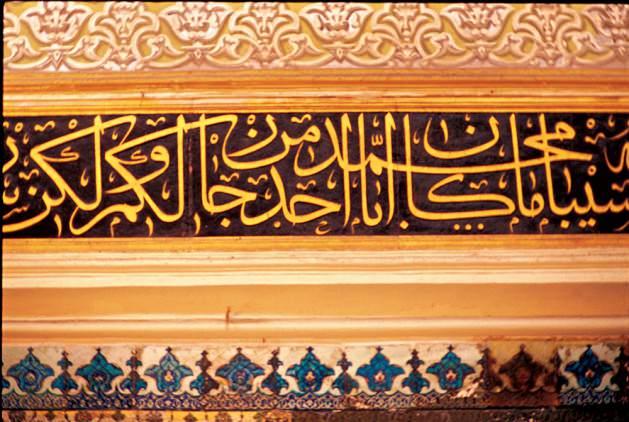 سيبا ما كان محمد ابا احد من رجالكم ولكن